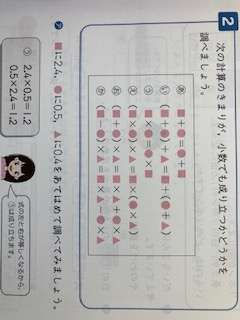 2
次の計算のきまりが、小数でも成り立つかどうかを
調べましょう。
あ ■+●=●+■
い (■+●)+▲=■+(●+▲)
う ■×●=●×■
え (■×●)×▲=■×(●×▲)
お (■+●)×▲=■×▲+●×▲
か (■-●)×▲=■×▲-●×▲
ア ■に2.4、●に0.5、▲に0.4をあてはめて調べてみましょう。
う
2.4×0.5=1.2
0.5×2.4=1.2
式の左と右が等しくなるから、
うは成り立ちます。